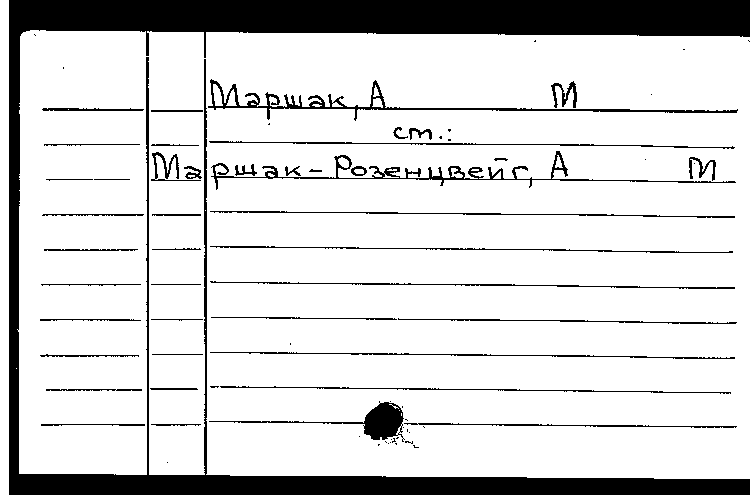 Маршак, А М
см.:
Маршак-Розенцвейг, А М